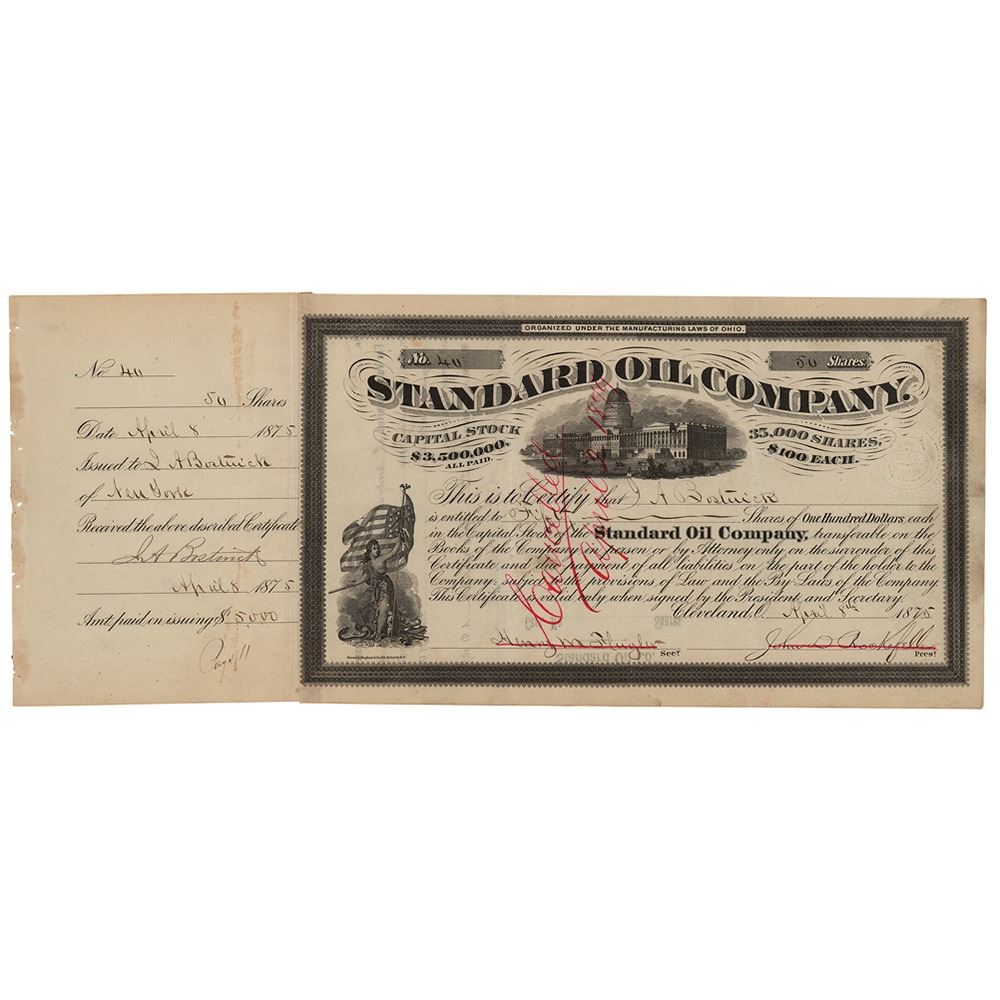 No 40
50 Shares
Date April 8 1875
Issued to J A Bostwick
of New York
Received the above described Certificate
J A Bostwick
April 8 1875
Amt. paid on issuing $ 5,000
Page 11
ORGANIZED UNDER THE MANUFACTURING LAWS OF OHIO.
No. 40
50 Shares.
STANDARD OIL COMPANY.
CAPITAL STOCK
$3,500,000.
ALL PAID.
35,000 SHARES,
$100 EACH.
This is to Certify that J A Bostwick
is entitled to Shares of One Hundred Dollars each
in the Capital Stock of the Standard Oil Company, transferable on the
Books of the Company in person or by Attorney only on the surrender of this
Certificate and the payment of all liabilities on the part of the holder to the
Company: subject to the provisions of Law and the By Laws of the Company.
This Certificate is valid only when signed by the President and Secretary.
Cleveland, O. April 8th 1875
Henry M Flagler Secy
John D Rockefeller Prest
Cancelled